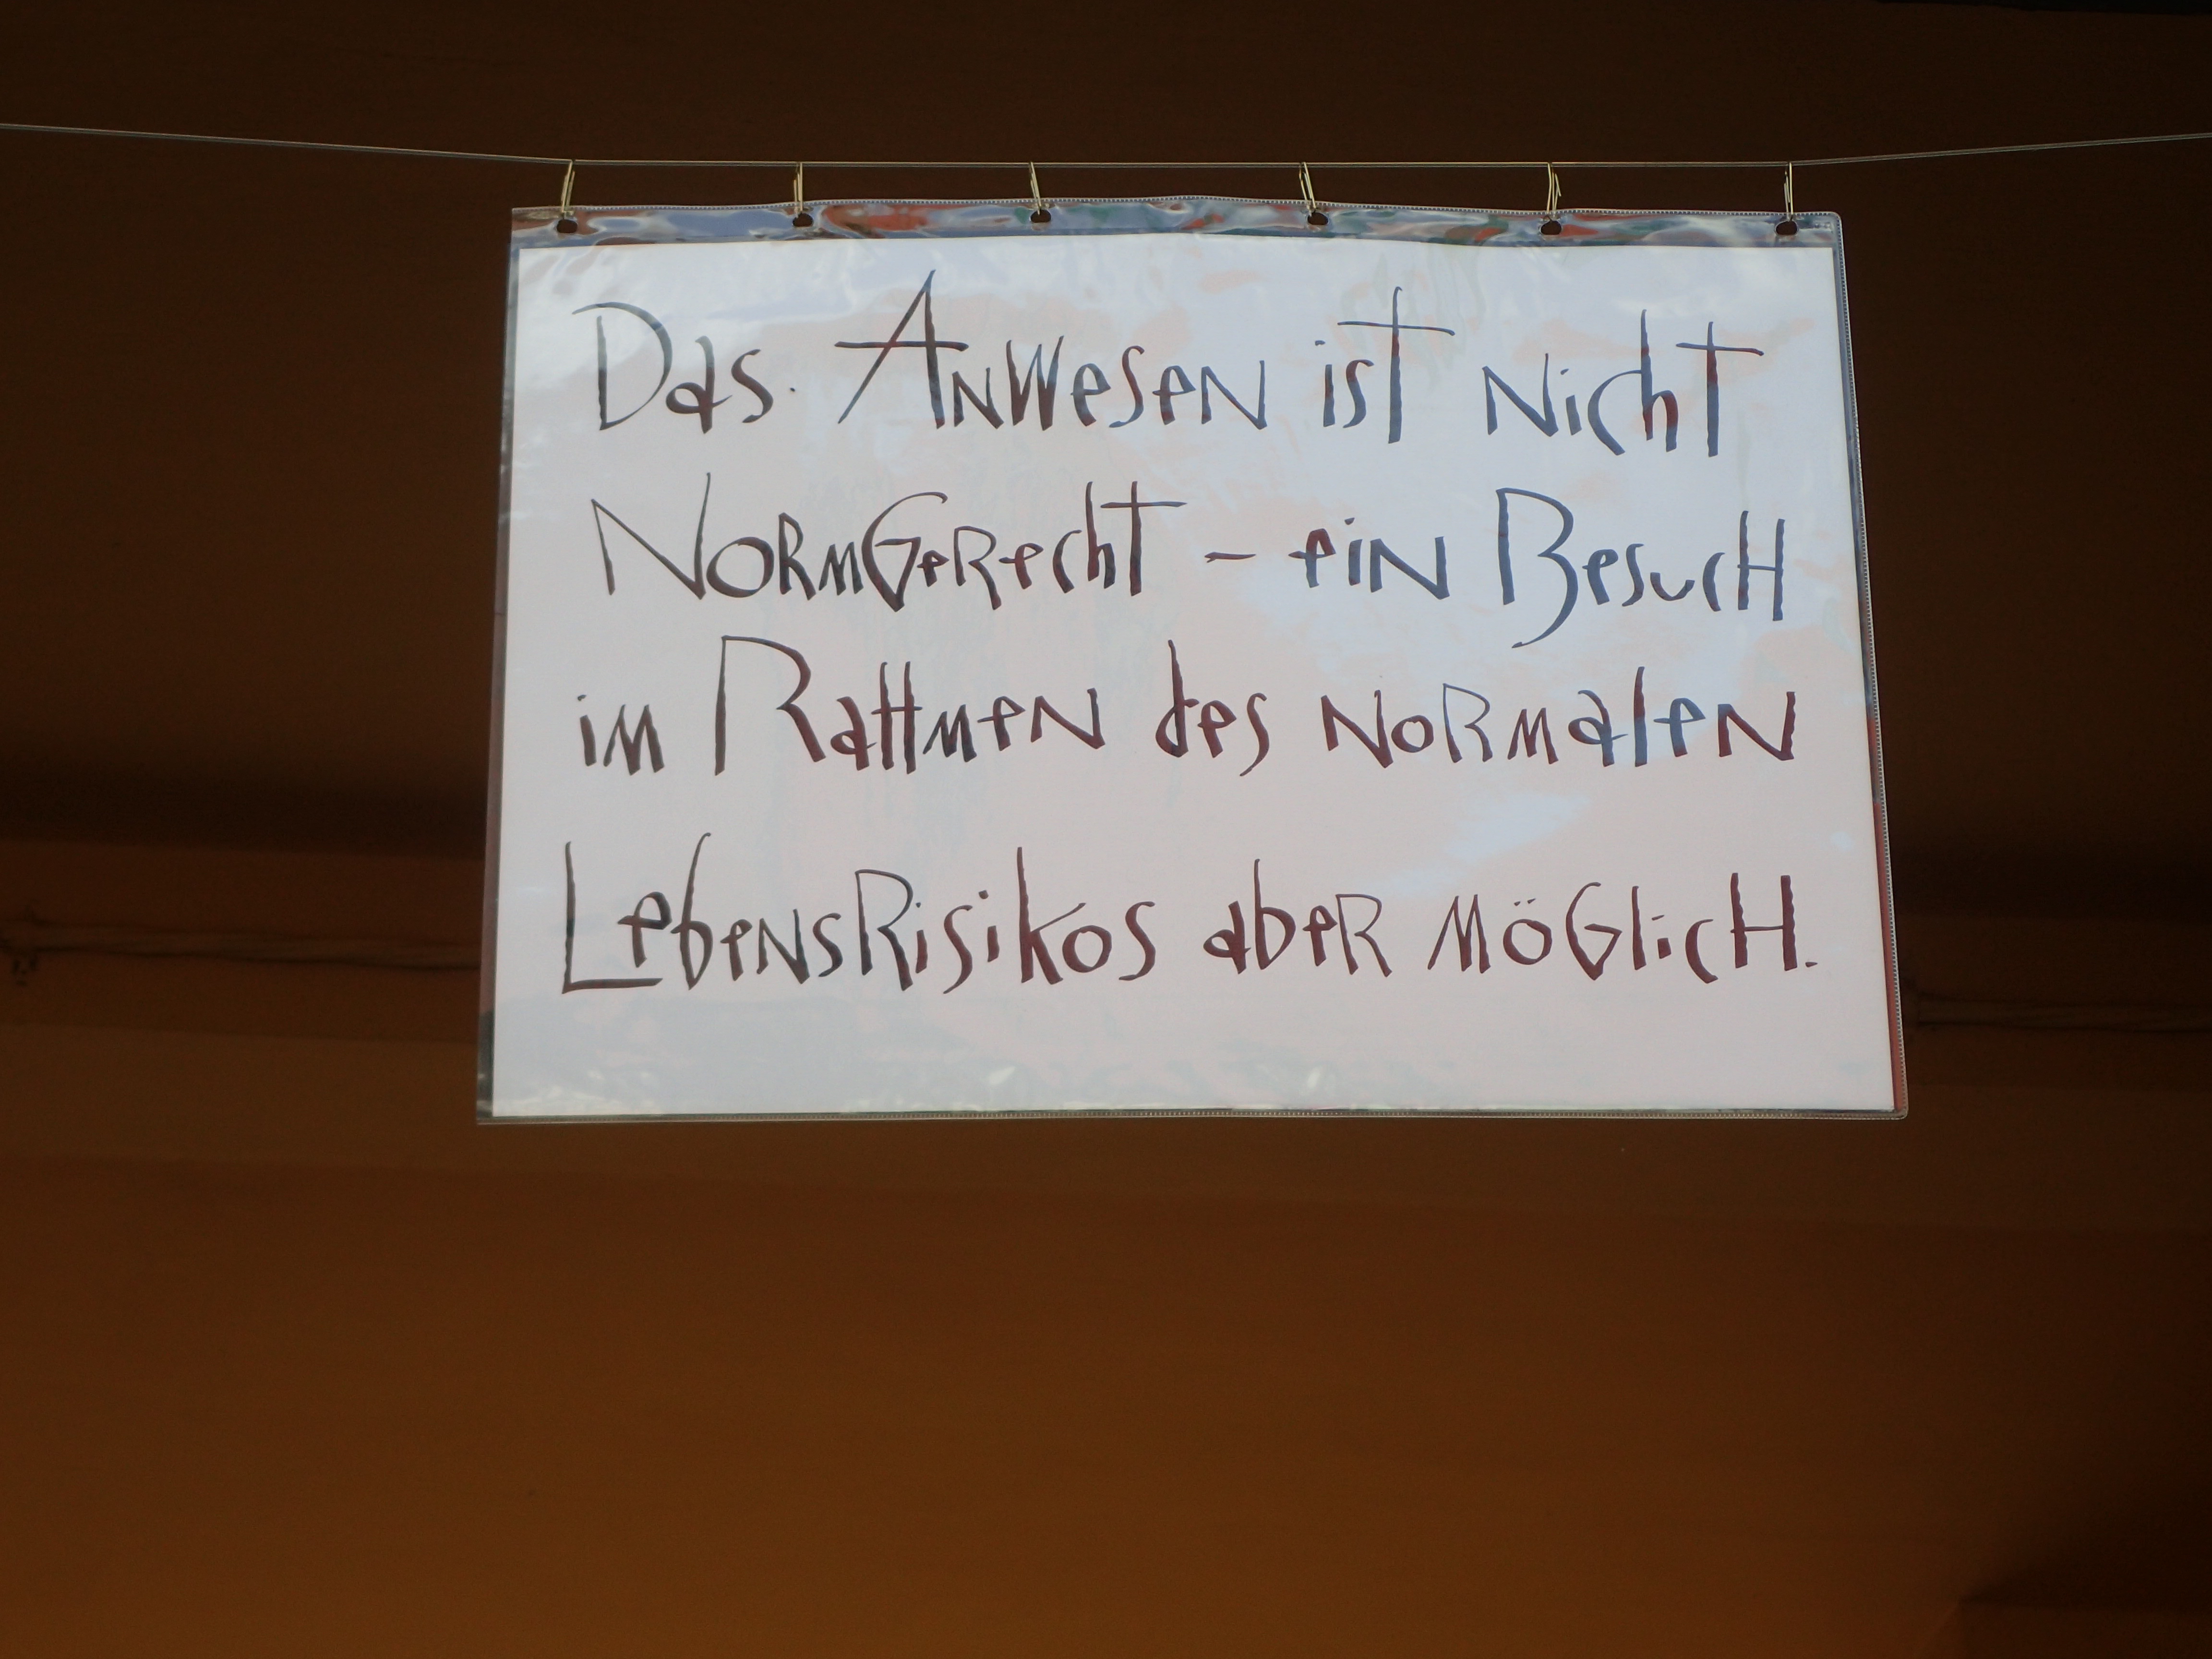 Das Anwesen ist nicht
NormGerecht - ein Besuch
im Rahmen des normalen
LebensRisikos aber möGlich.